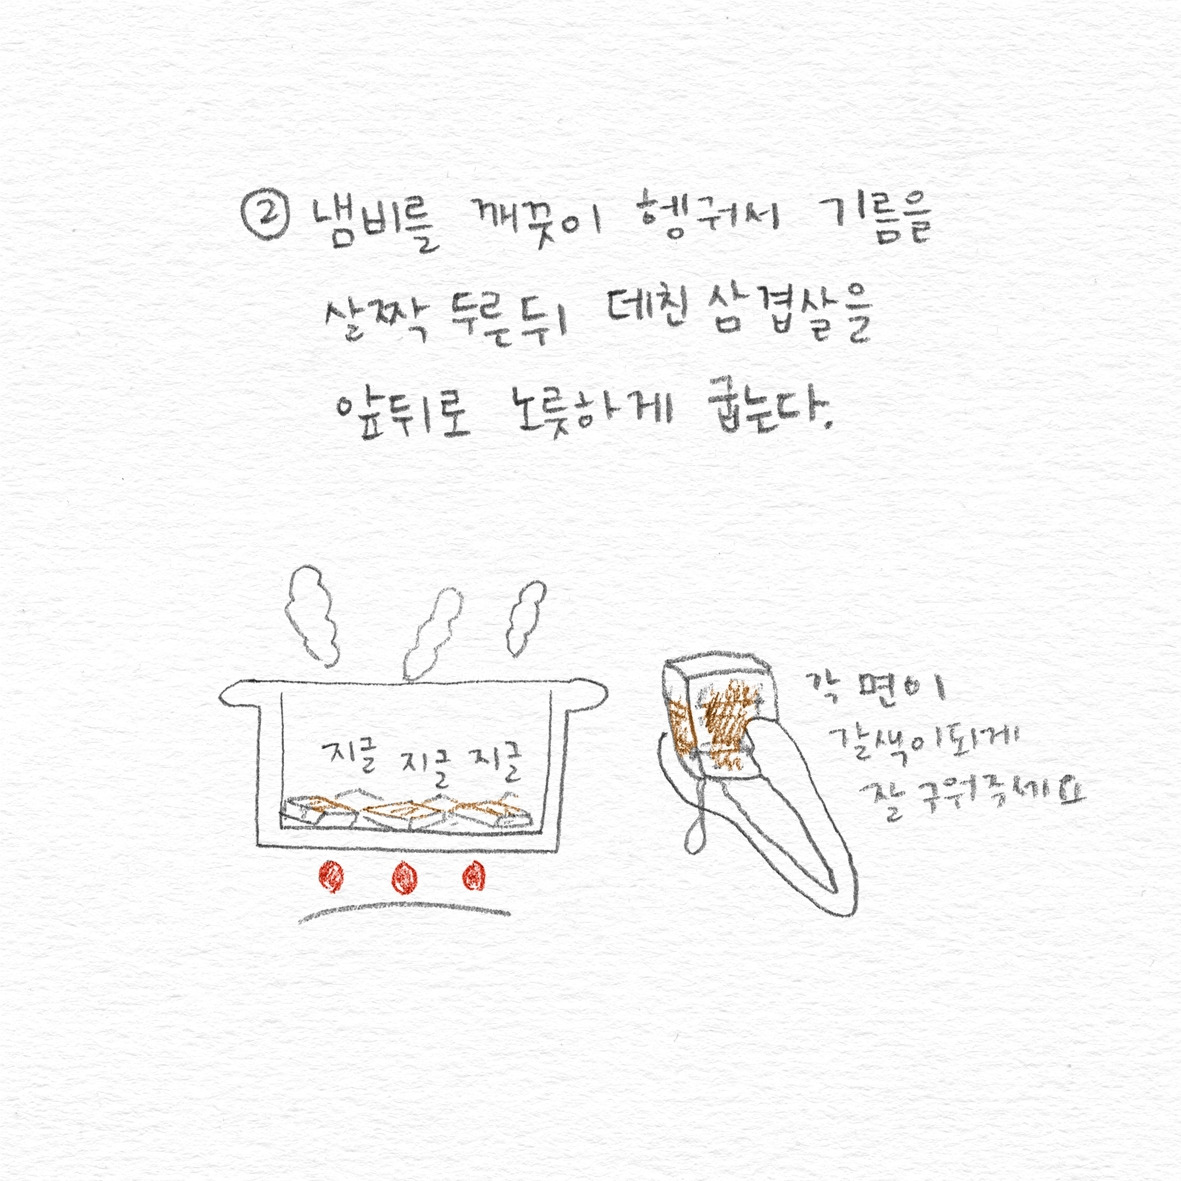 ② 냄비를 깨끗이 헹궈서 기름을
살짝 두른뒤 데친 삼겹살을
앞뒤로 노릇하게 굽는다.
지글 지글 지글
각 면이
갈색이되게
잘 구워주세요